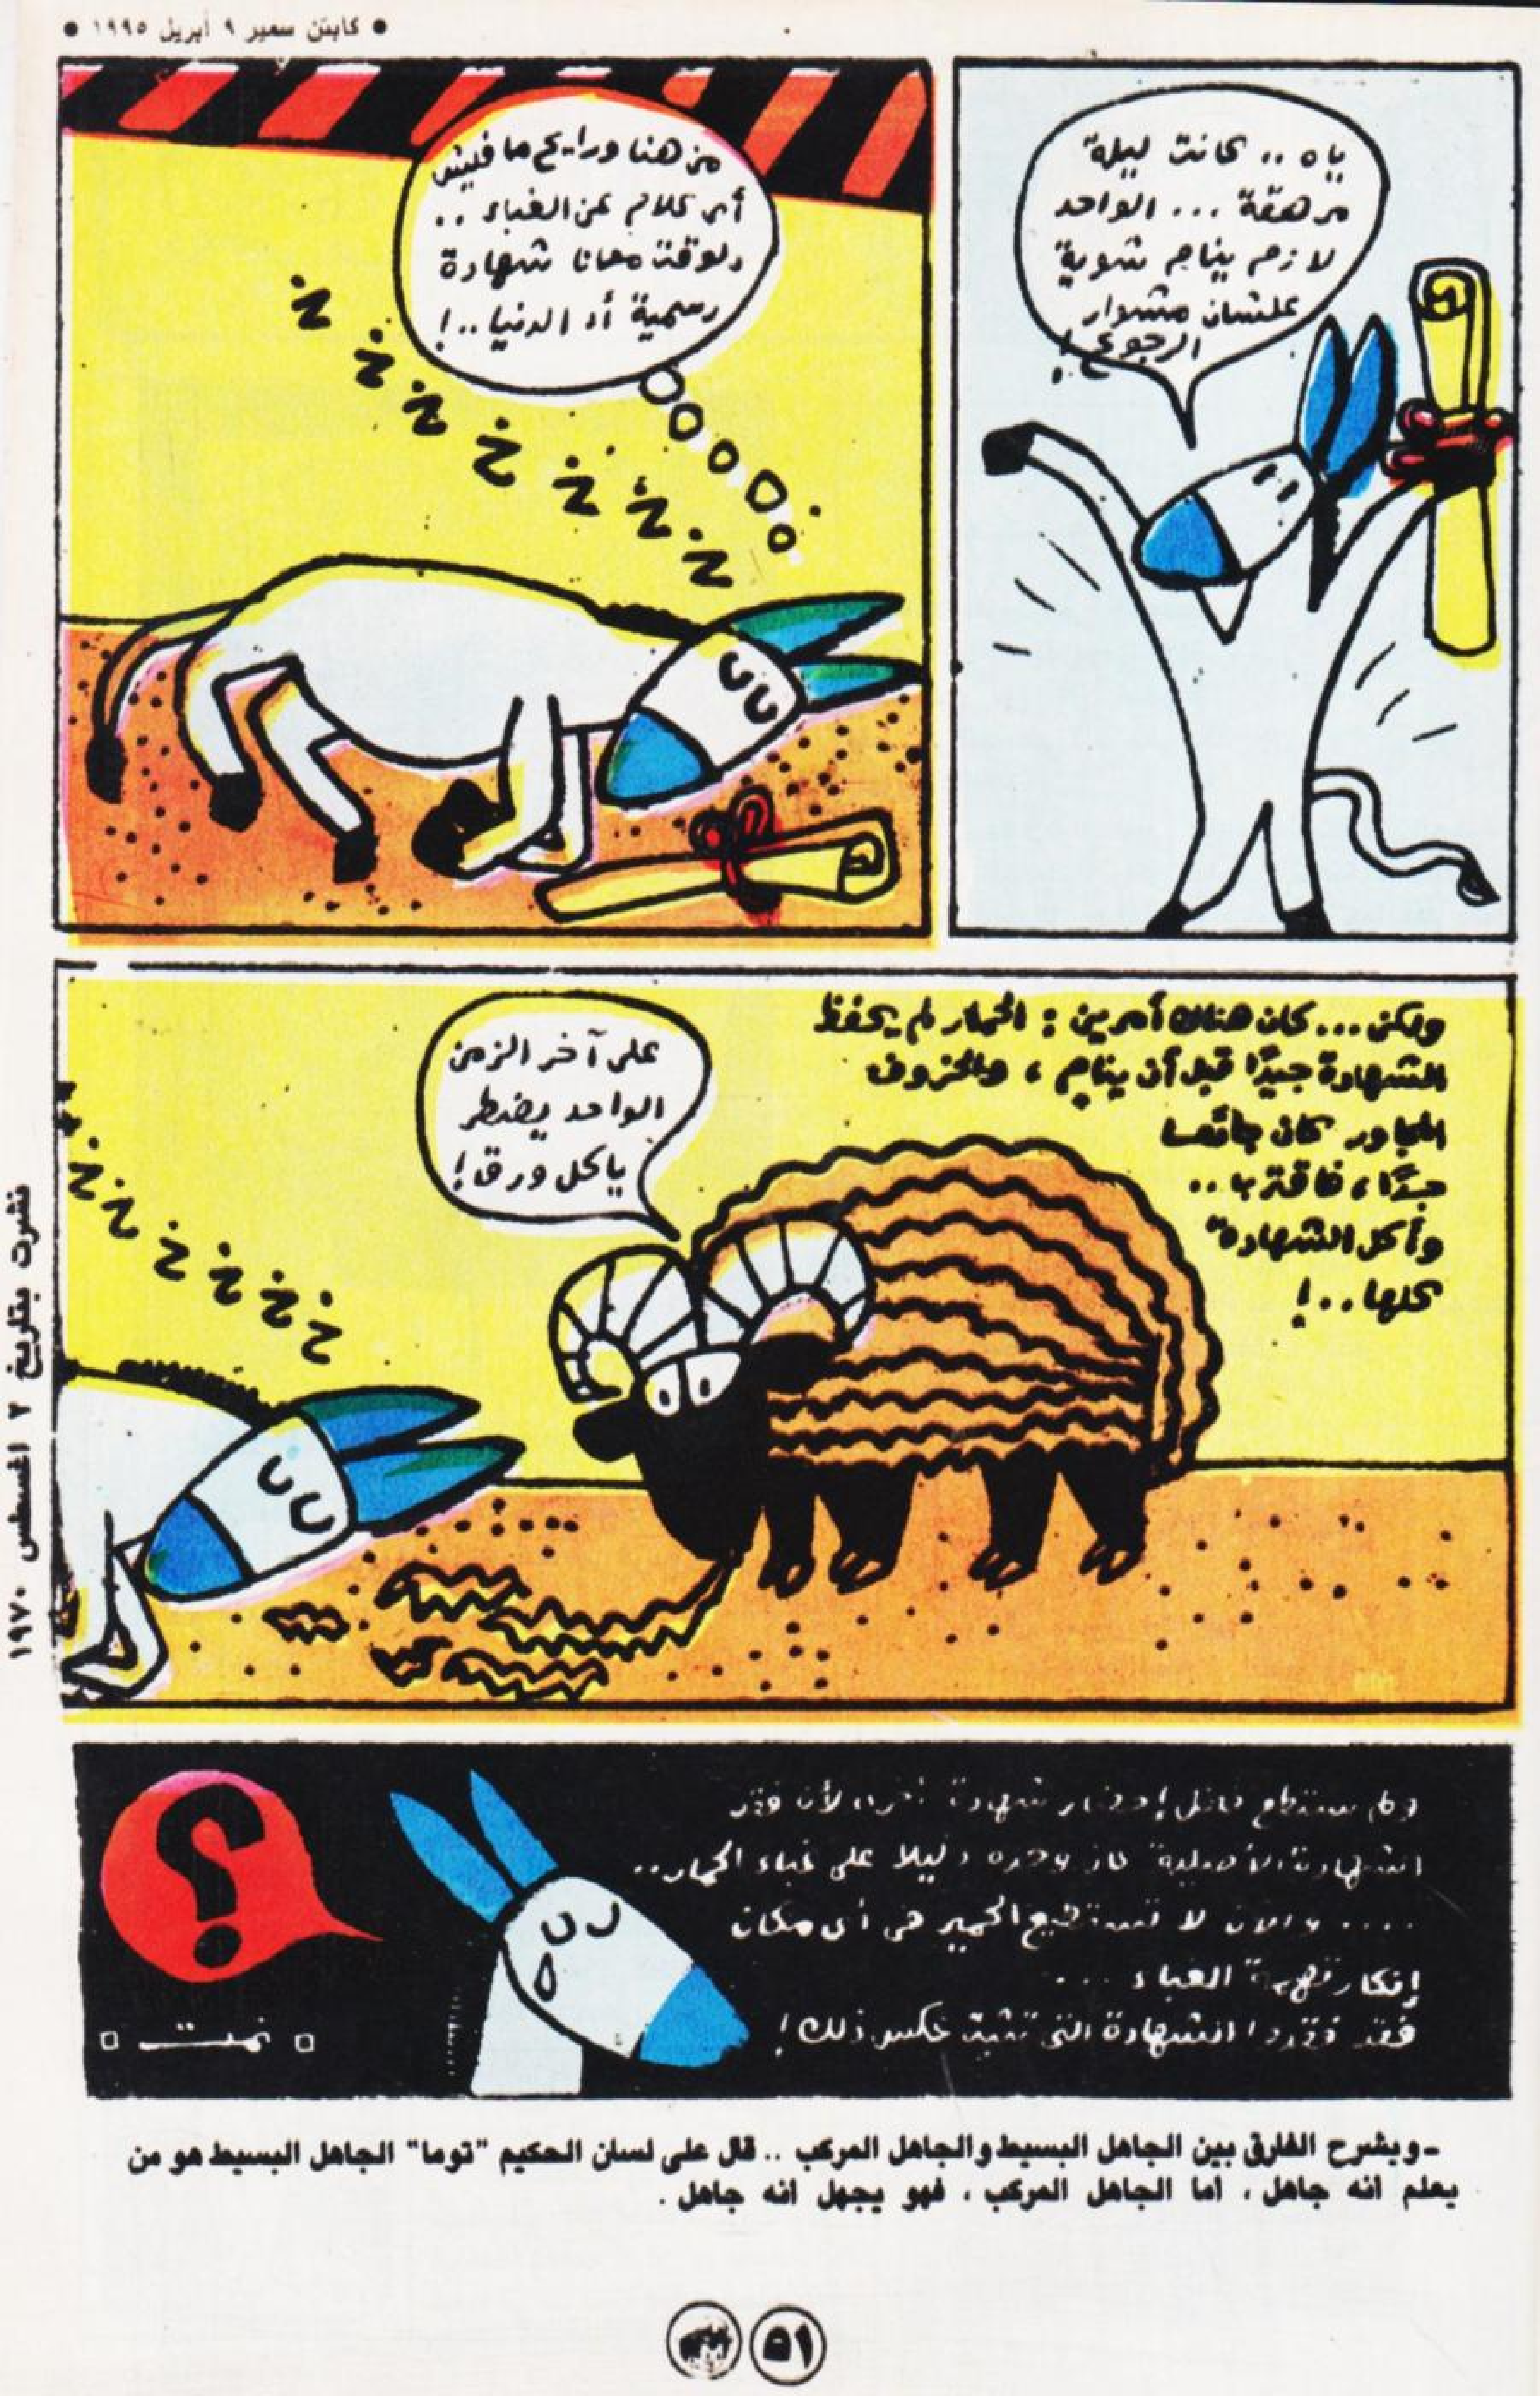 ● كابتن سمير ٩ أبريل ١٩٩٥ ●
ياه .. كانت ليلة
مرهقة ... الواحد
لازم ينام شوية
علشان مشوار
الرجوع !
من هنا ورايح ما فيش
أى كلام عن الغباء ..
دلوقت معانا شهادة
رسمية أد الدنيا .. !
خ خ خ خ خ خ خ
ولكن ... كان هناك أمرين : الحمار لم يحفظ
الشهادة جيدًا قبل أن ينام ، والخروف
المجاور كان جائعا
جدًا ، فاقترب ..
وأكل الشهادة
كلها .. !
على آخر الزمن
الواحد يضطر
ياكل ورق !
خ خ خ خ خ خ خ
ولم يستطع إحضار شهادة أخرى لأن فقد
الشهادة الأصلية كان وحده دليلا على غباء الحمار ..
.... والآن لا تستطيع الحمير فى أى مكان
إنكار تهمة الغباء ...
فقد فقدوا الشهادة التى تثبت عكس ذلك !
؟
تمت
نشرت بتاريخ ٢ اغسطس ١٩٧٠
- ويشرح الفارق بين الجاهل البسيط والجاهل المركب .. قال على لسان الحكيم "توما" الجاهل البسيط هو من
يعلم انه جاهل ، اما الجاهل المركب ، فهو يجهل انه جاهل .
٥١